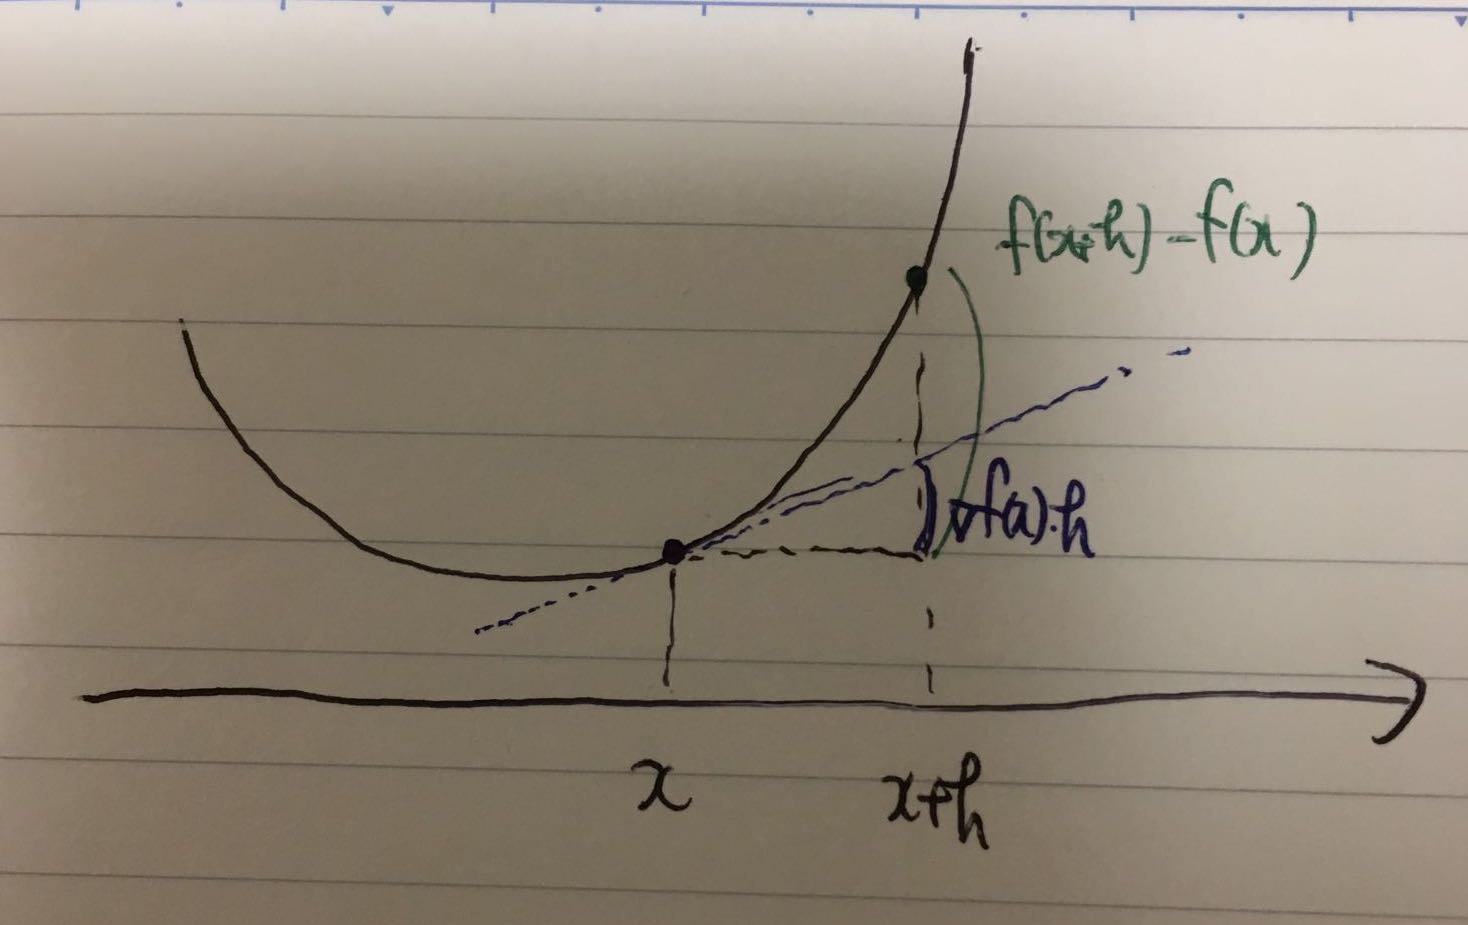 f(x+h)-f(x)
∇f(x)·h
x
x+h